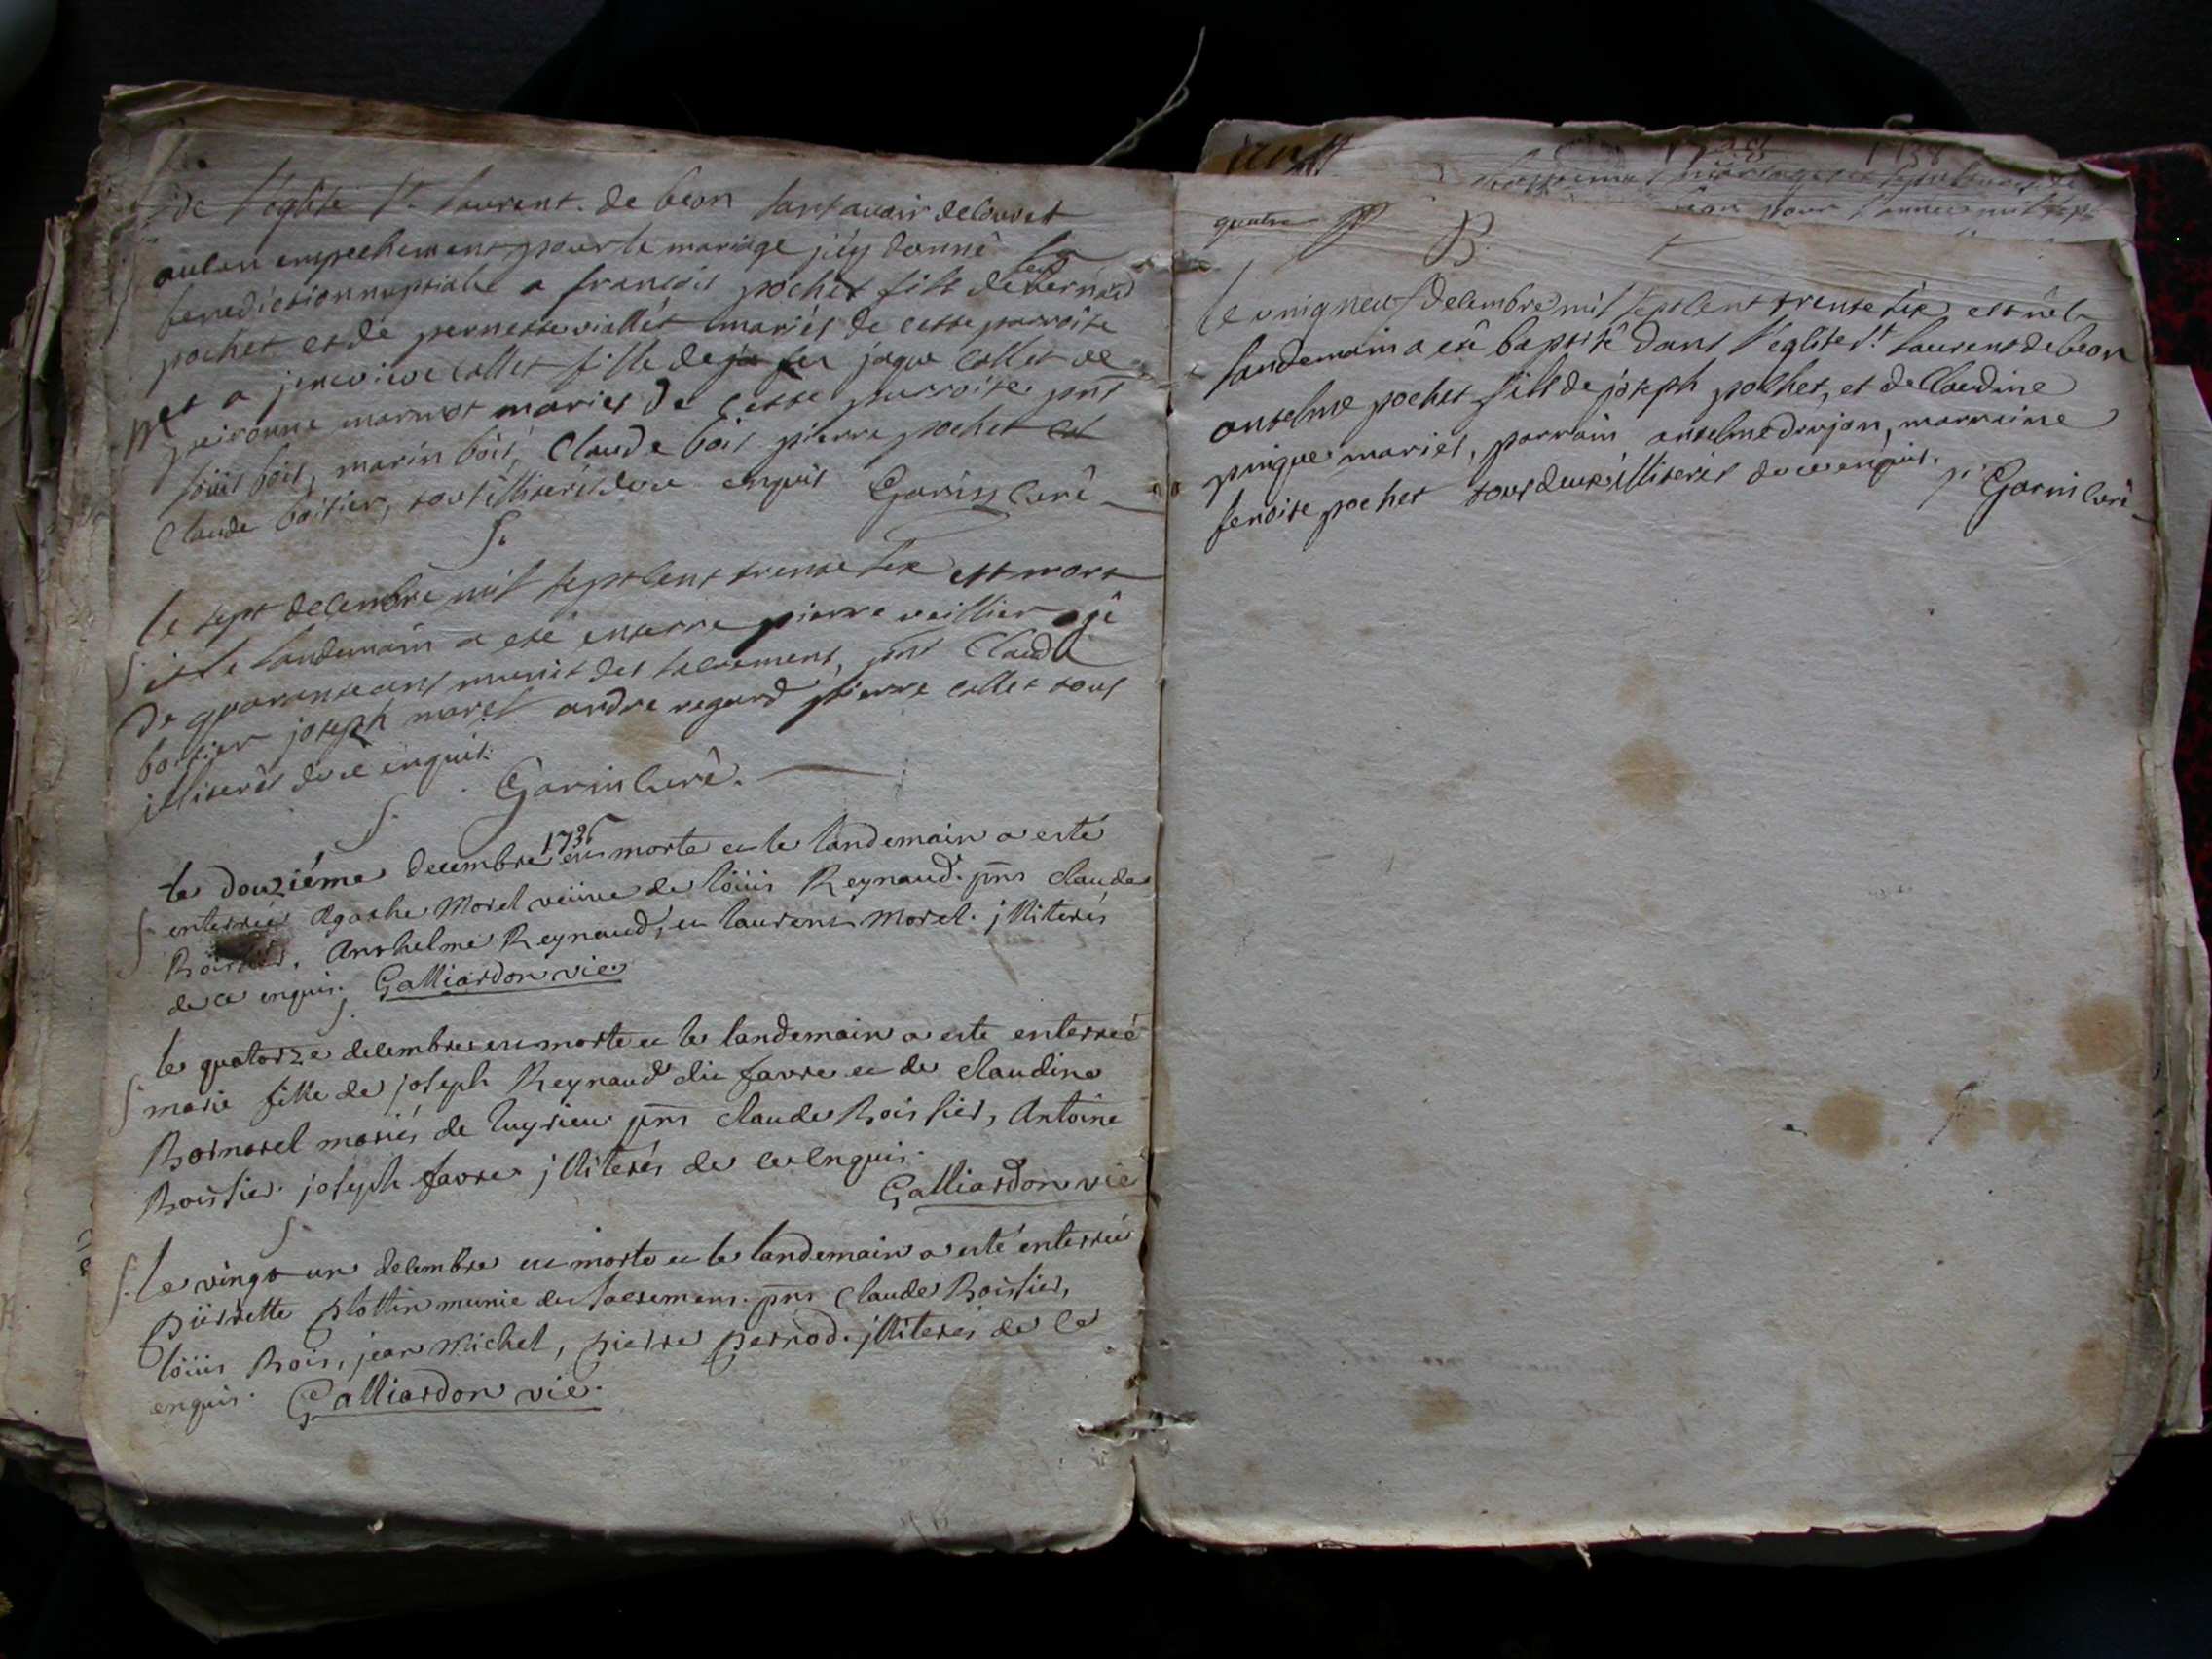 de l'église St. laurent. de beon sans avoir decouvet
aucun empechement pour le mariage j'éy donné la
benediction nuptiale a francois pochet fils de feu bernard
pochet et de pernette viallét mariés de cette parroisse
et a jeneviéve collet fille de jaque collet et de
marnot mariés de cette parroisse pnt
loüis bois, marin bois, Claude bois pierre pochet et
Claude boitier, tous illiserés de ce enquis Garin Curé
S.
le sept decembre mil sept cent trente six est mort
S. et le landemain a eté enterre pierre veillier agé
de quarante ans munit des sacrement, pnt Claude
boitier joseph morel andre regard pierre collet tous
illiserés de ce enquit.
S. Garin Curé.
1736
le douziéme decembre est morte et le landemain a esté
S. enterrée Agathe Morel veüve de loüis Reynaud. pnts claude
Boissier, Anthelme Reynaud, et laurent Morel. jlliterés
de ce enquis. Galliardon vic
S.
le quatorze decembre est morte et le landemain a esté enterreé
S. marie fille de joseph Reynaud dit favre et de claudine
Bornarel mariés de luyrieu pnts claude Boissier, Antoine
Boissier. joseph favre jlliterés de ce enquis.
Galliardon vic
S.
S. le vingt un decembre est morte et le landemain a esté enterreé
pierrette plottin munie des sacremens. pnts Claude Boissier,
loüis Bois, jean Michel, pierre pernod. jlliterés de ce
enquis. Galliardon vic.
1738 1738
mariages et sepultures de
pour l'année mil sept
quatre
B.
le vingt neuf decembre mil sept cent trente six est né et le
landemain a eté baptisé dans l'eglise St. laurent de beon
anselme pochet fils de joseph pochet, et de Claudine
pingue mariés, parrain anselme drujon, marraine
benoite pochet tous deux illiserés de ce enquis.
Garin Curé